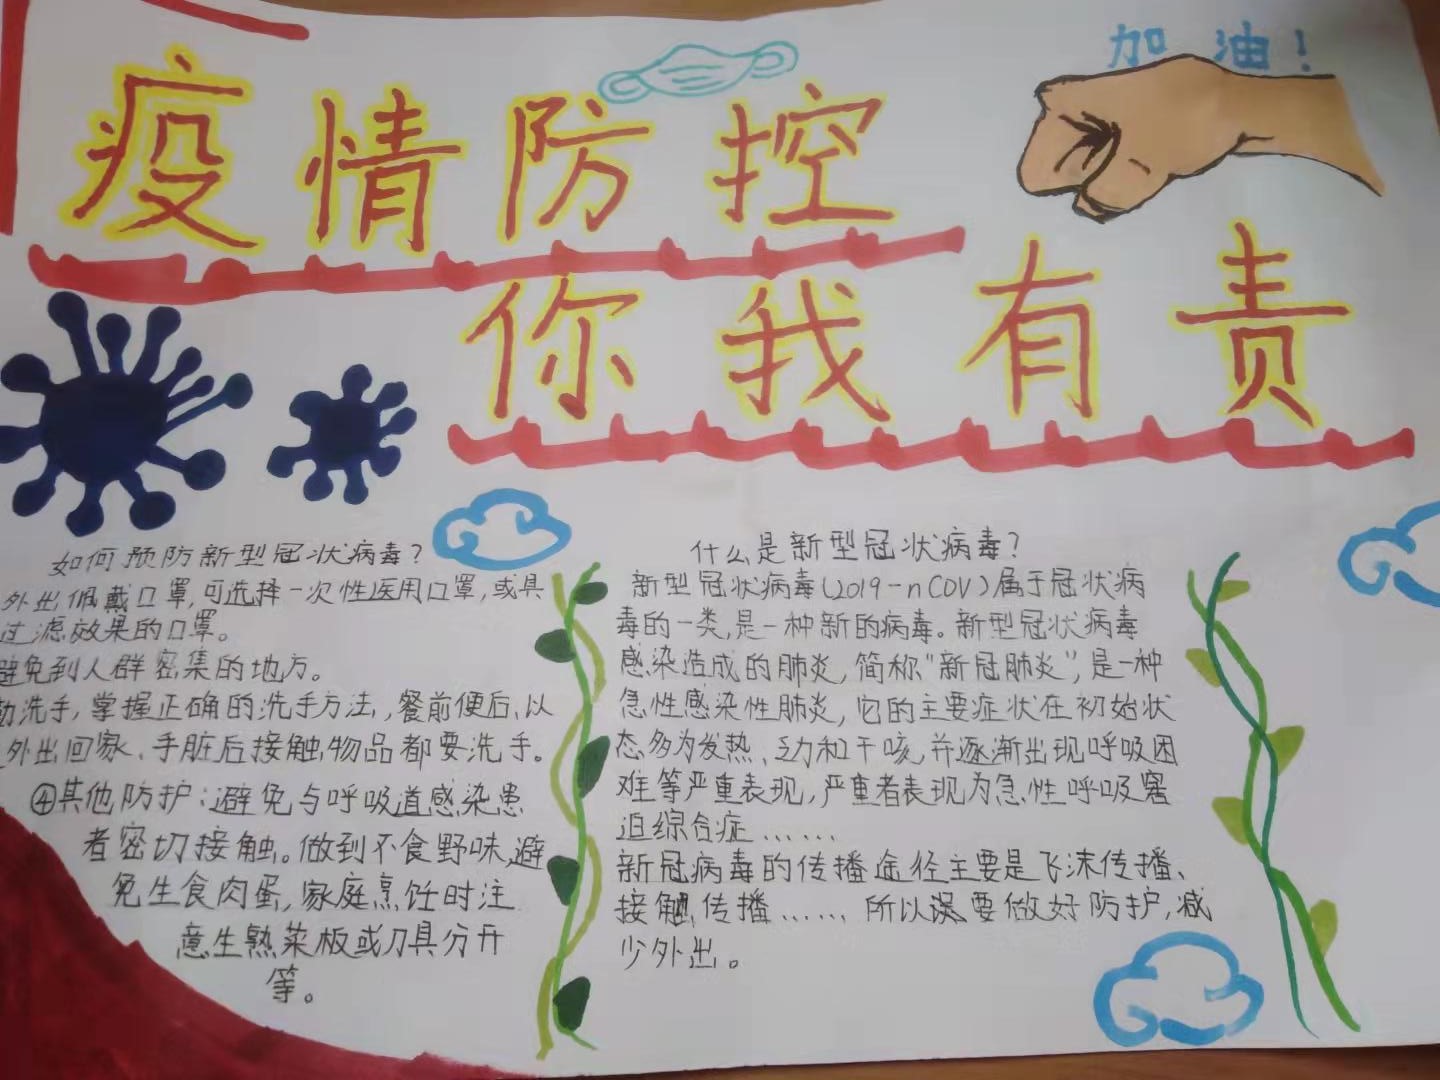 加油!
疫情防控
你我有责
如何预防新型冠状病毒?
外出佩戴口罩,可选择一次性医用口罩,或具
过滤效果的口罩。
避免到人群密集的地方。
勤洗手,掌握正确的洗手方法,餐前便后、以
外出回家、手脏后接触物品都要洗手。
④其他防护:避免与呼吸道感染患
者密切接触。做到不食野味,避
免生食肉蛋,家庭烹饪时注
意生熟菜板或刀具分开
等。
什么是新型冠状病毒?
新型冠状病毒(2019-nCOV)属于冠状病
毒的一类,是一种新的病毒。新型冠状病毒
感染造成的肺炎,简称"新冠肺炎",是一种
急性感染性肺炎,它的主要症状在初始状
态多为发热、乏力和干咳,并逐渐出现呼吸困
难等严重表现,严重者表现为急性呼吸窘
迫综合症……
新冠病毒的传播途径主要是飞沫传播、
接触传播……,所以要做好防护,减
少外出。